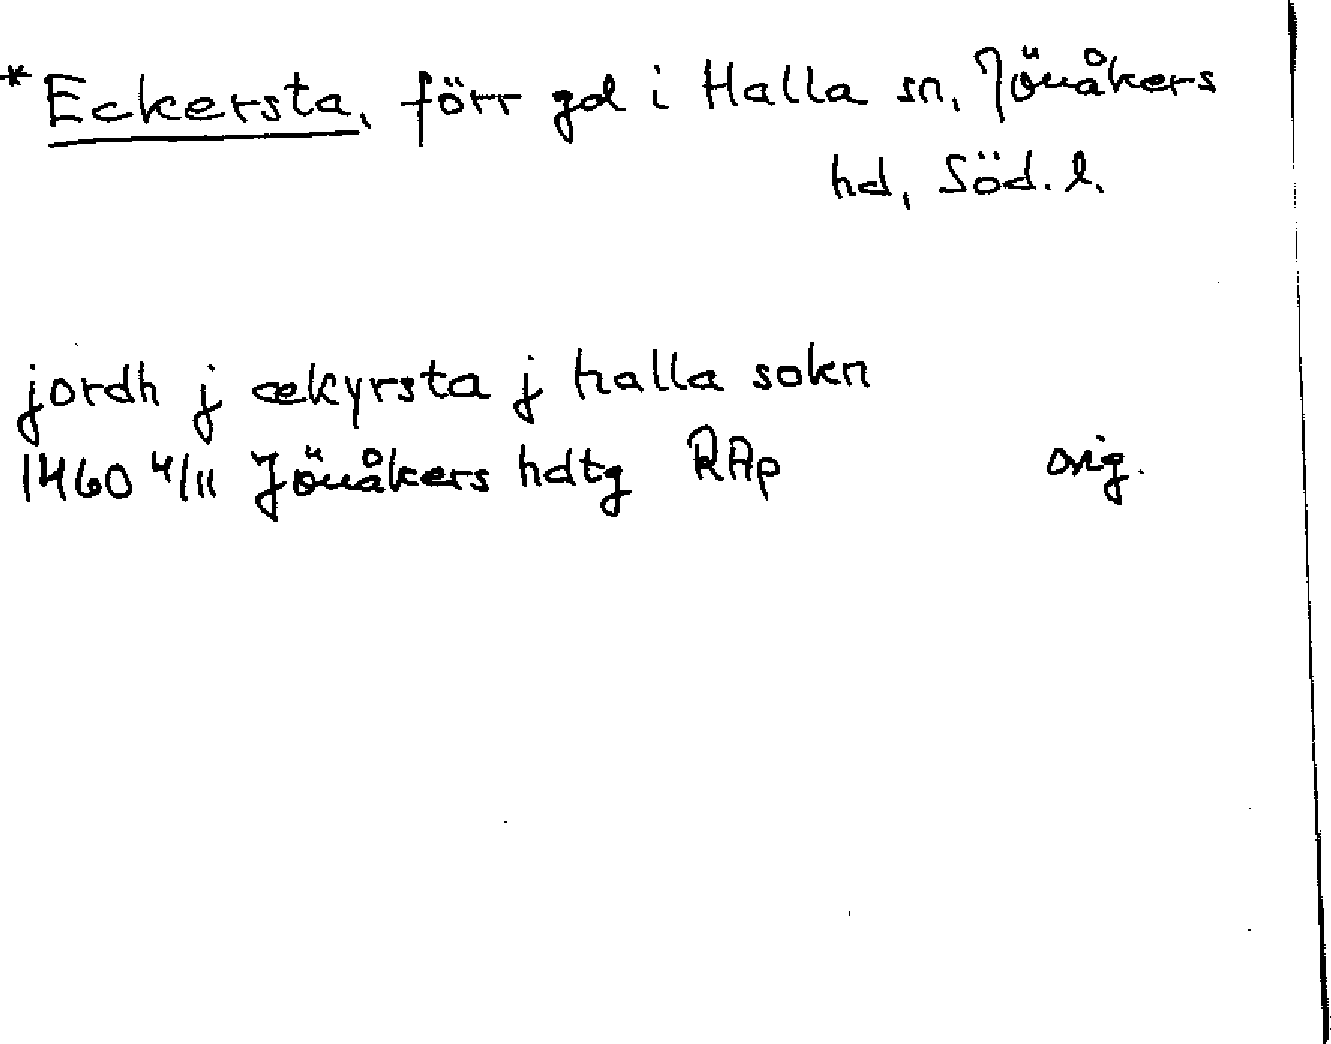 *Eckersta, förr gd i Halla sn, Jönåkers
hd, Söd. l.
jordh j ækyrsta j halla sokn
1460 4/11 Jönåkers hdtg RAp orig.